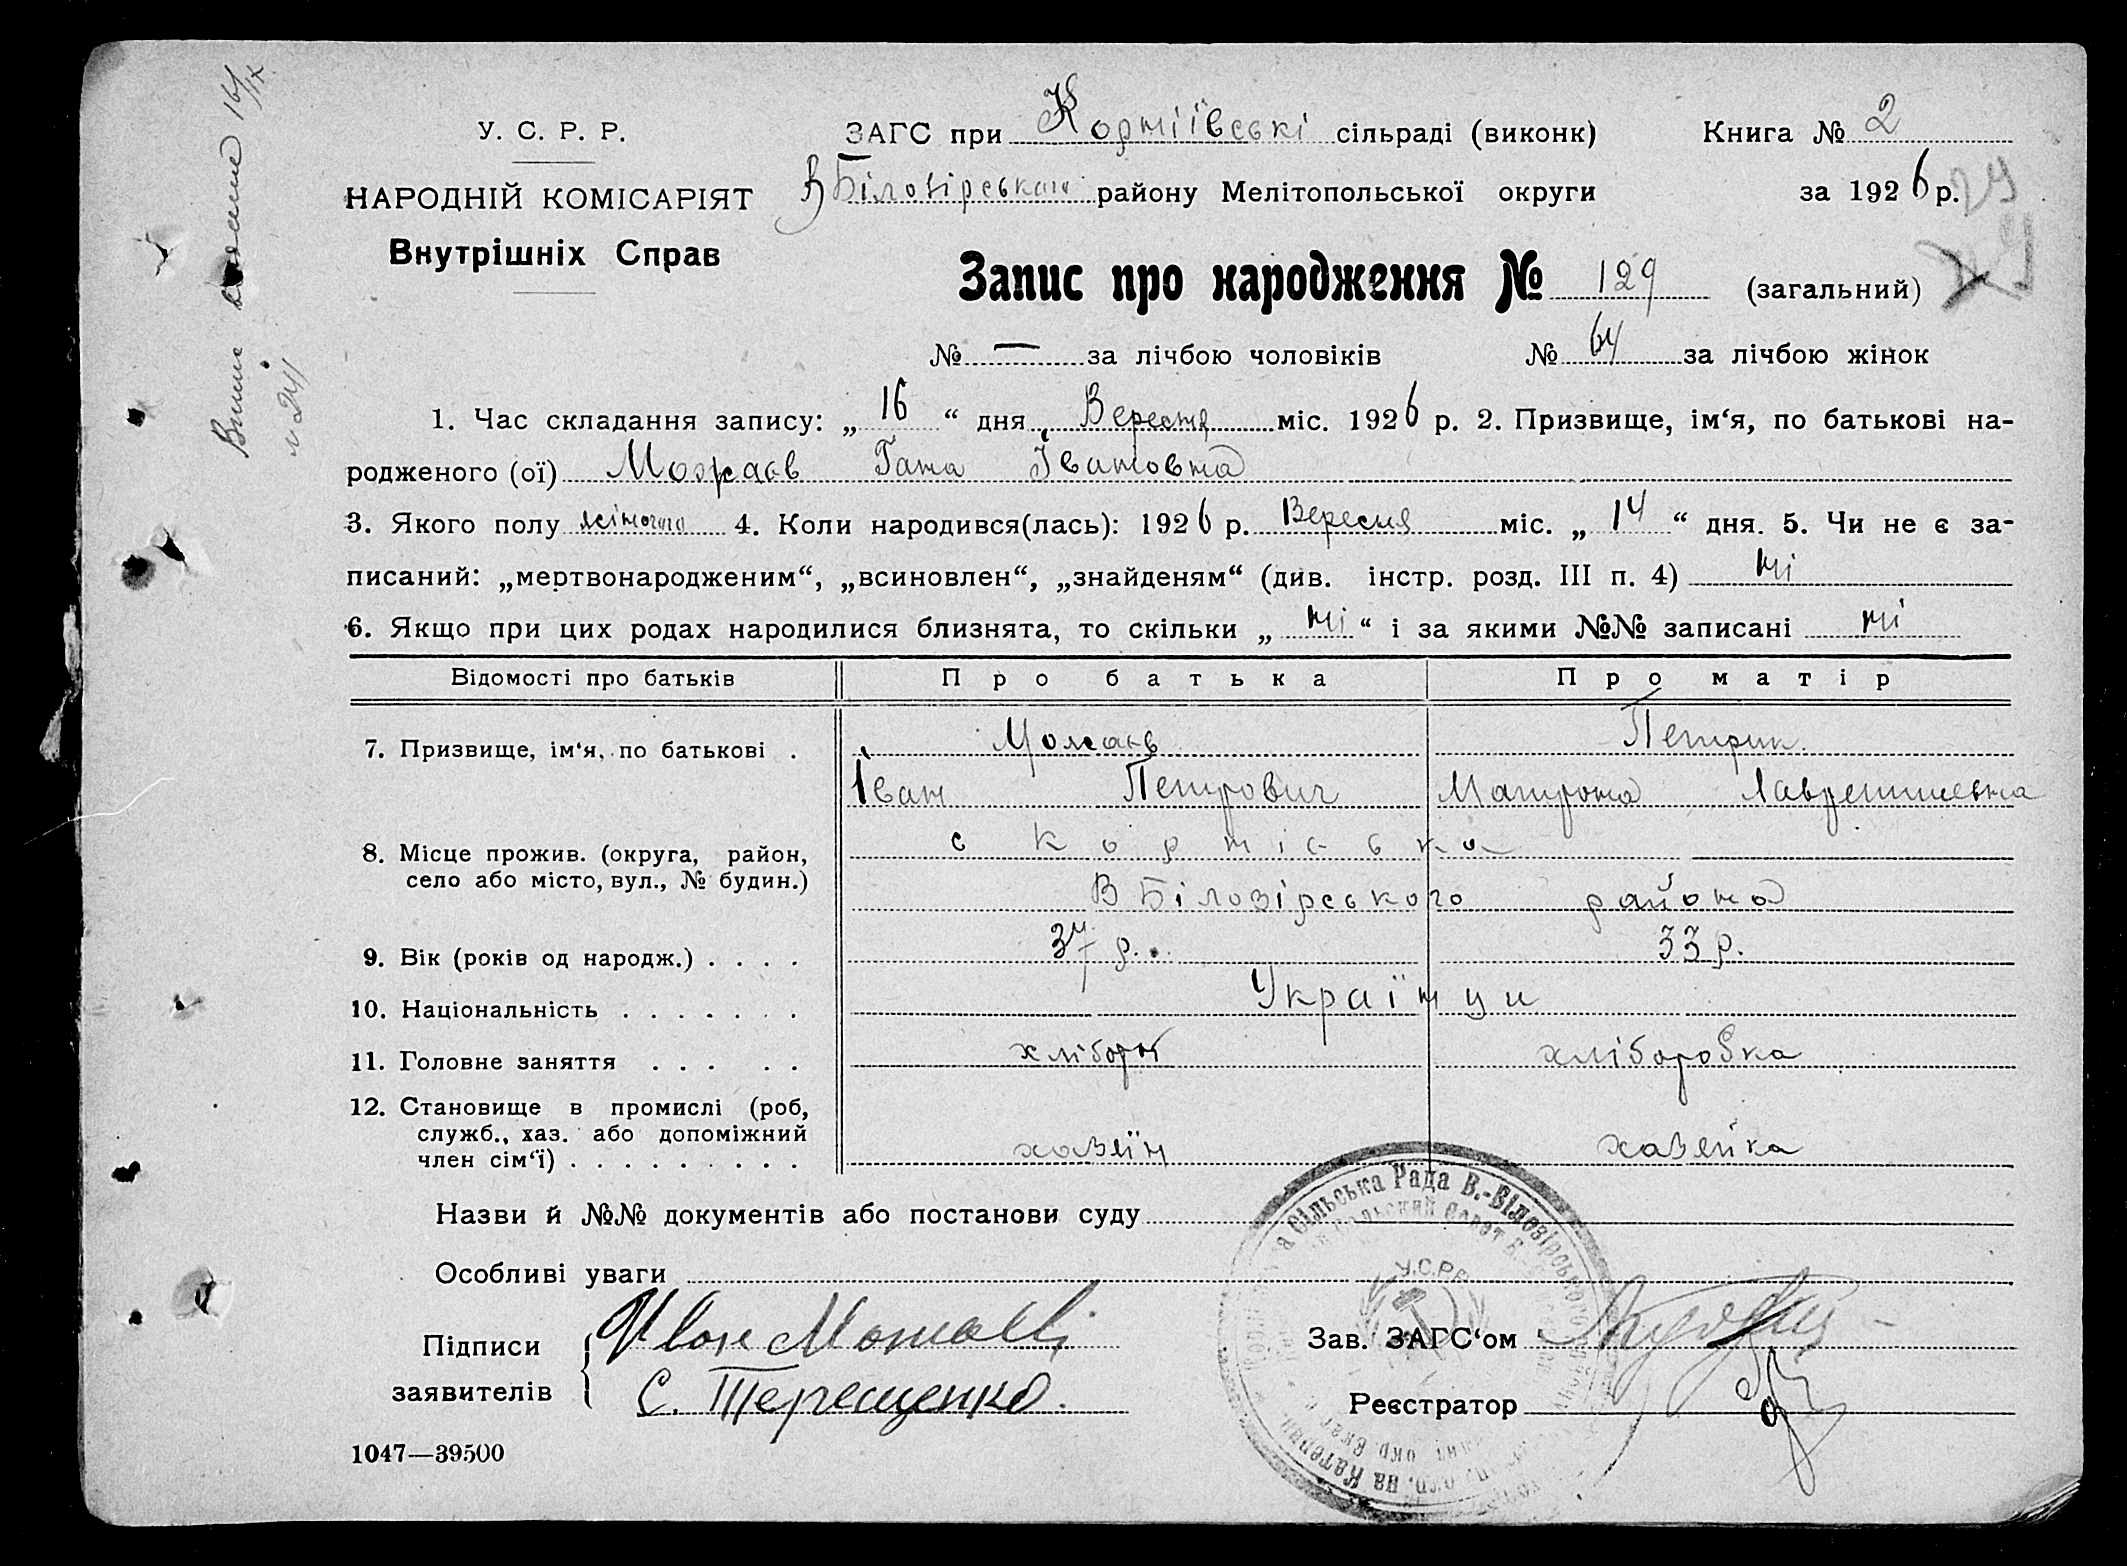 У. С. Р. Р.
НАРОДНІЙ КОМІСАРІЯТ
Внутрішніх Справ
ЗАГС при Корніївські сільраді (виконк)
В Білозірського району Мелітопольської округи
Книга № 2
за 1926 р.
29
Запис про народження № 129 (загальний)
№ — за лічбою чоловіків № 64 за лічбою жінок
1. Час складання запису: „16“ дня Вересня міс. 1926 р. 2. Призвище, ім‘я, по батькові на-
родженого (ої) Можаєв Гана Івановна
3. Якого полу жіночого 4. Коли народився(лась): 1926 р. Вересня міс. „14“ дня. 5. Чи не є за-
писаний: „мертвонародженим“, „всиновлен“, „знайденям“ (див. інстр. розд. III п. 4) ні
6. Якщо при цих родах народилися близнята, то скільки „ні“ і за якими №№ записані ні
Відомості про батьків Про батька Про матір
7. Призвище, ім‘я, по батькові . Можаєв Петрик
Іван Петрович Матрона Лаврентиевна
8. Місце прожив. (округа, район, с Корніевка
село або місто, вул., № будин.) В Білозірського района
9. Вік (років од народж.) . . . . 37 р. 33 р.
10. Національність . . . . . . . Українци
11. Головне заняття . . . . . хлібороб хліборобка
12. Становище в промислі (роб,
служб., хаз. або допоміжний
член сім‘ї) . . . . . . . . . хазяїн хазяйка
Назви й №№ документів або постанови суду
Особливі уваги
Підписи
заявителів
Иван Можаев
С. Терещенко.
Зав. ЗАГС‘ом
Реєстратор
Сільська Рада В.-Білозірського
У.С.Р.Р.
1047—39500